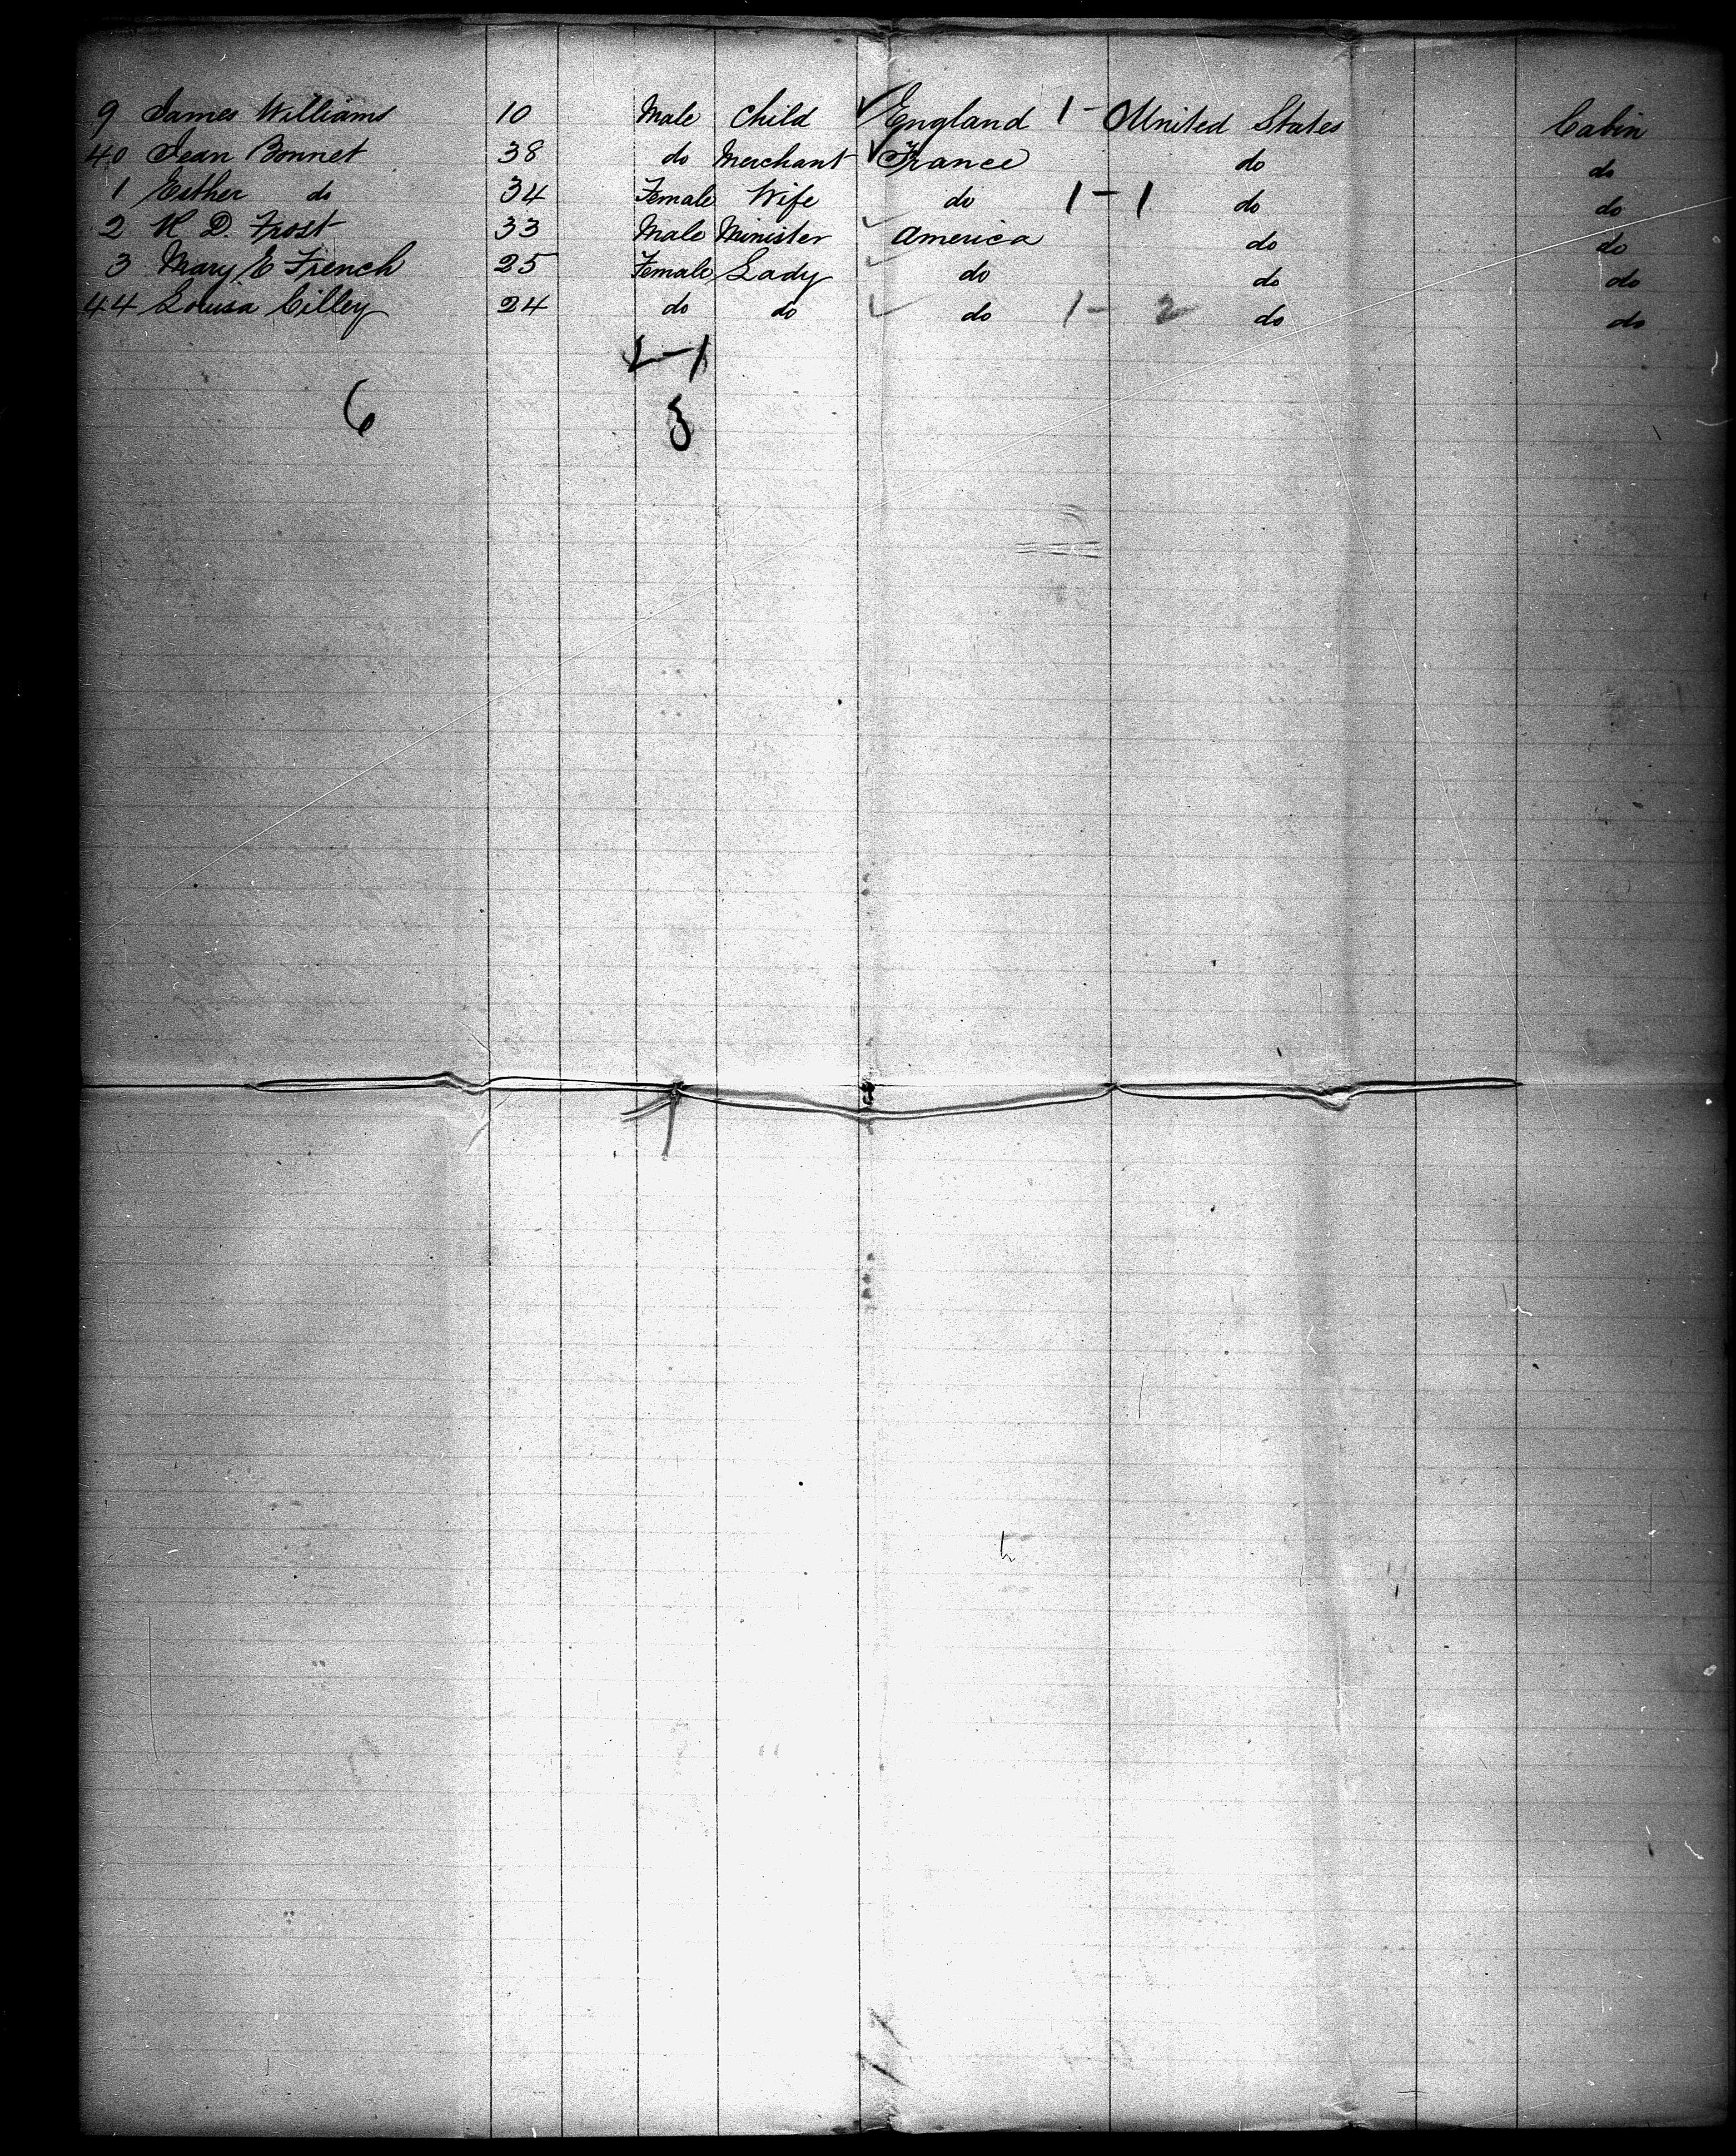 9 James Williams 10 Male Child ✓ England 1 - United States Cabin
40 Jean Bonnet 38 do Merchant ✓ France do do
1 Esther do 34 Female Wife do 1 - 1 do do
2 H D. Frost 33 Male Minister ✓ America do do
3 Mary E French 25 Female Lady ✓ do do do
44 Louisa Cilley 24 do do ✓ do 1 - 2 do do
2-1
6 3